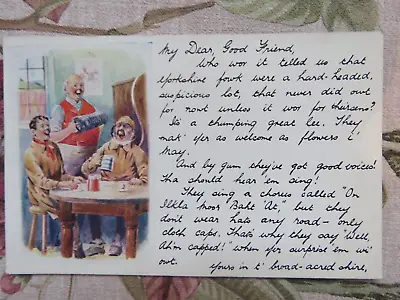 My Dear, Good Friend,
Who wor it telled us that
Yorkshire fowk were a hard-headed,
suspicious lot, that never did owt
for nowt unless it wor for theirsens?
It's a thumping great lee. They
mak' yer as welcome as flowers i'
May.
And by gum they've got good voices!
Tha should hear 'em sing!
They sing a chorus called "On
Ilkla Moor Baht 'At," but they
don't wear hats any road - only
cloth caps. That's why they say "Well,
Ah'm capped!" when yer surprise 'em wi'
owt.
Yours in t' broad-acred shire,